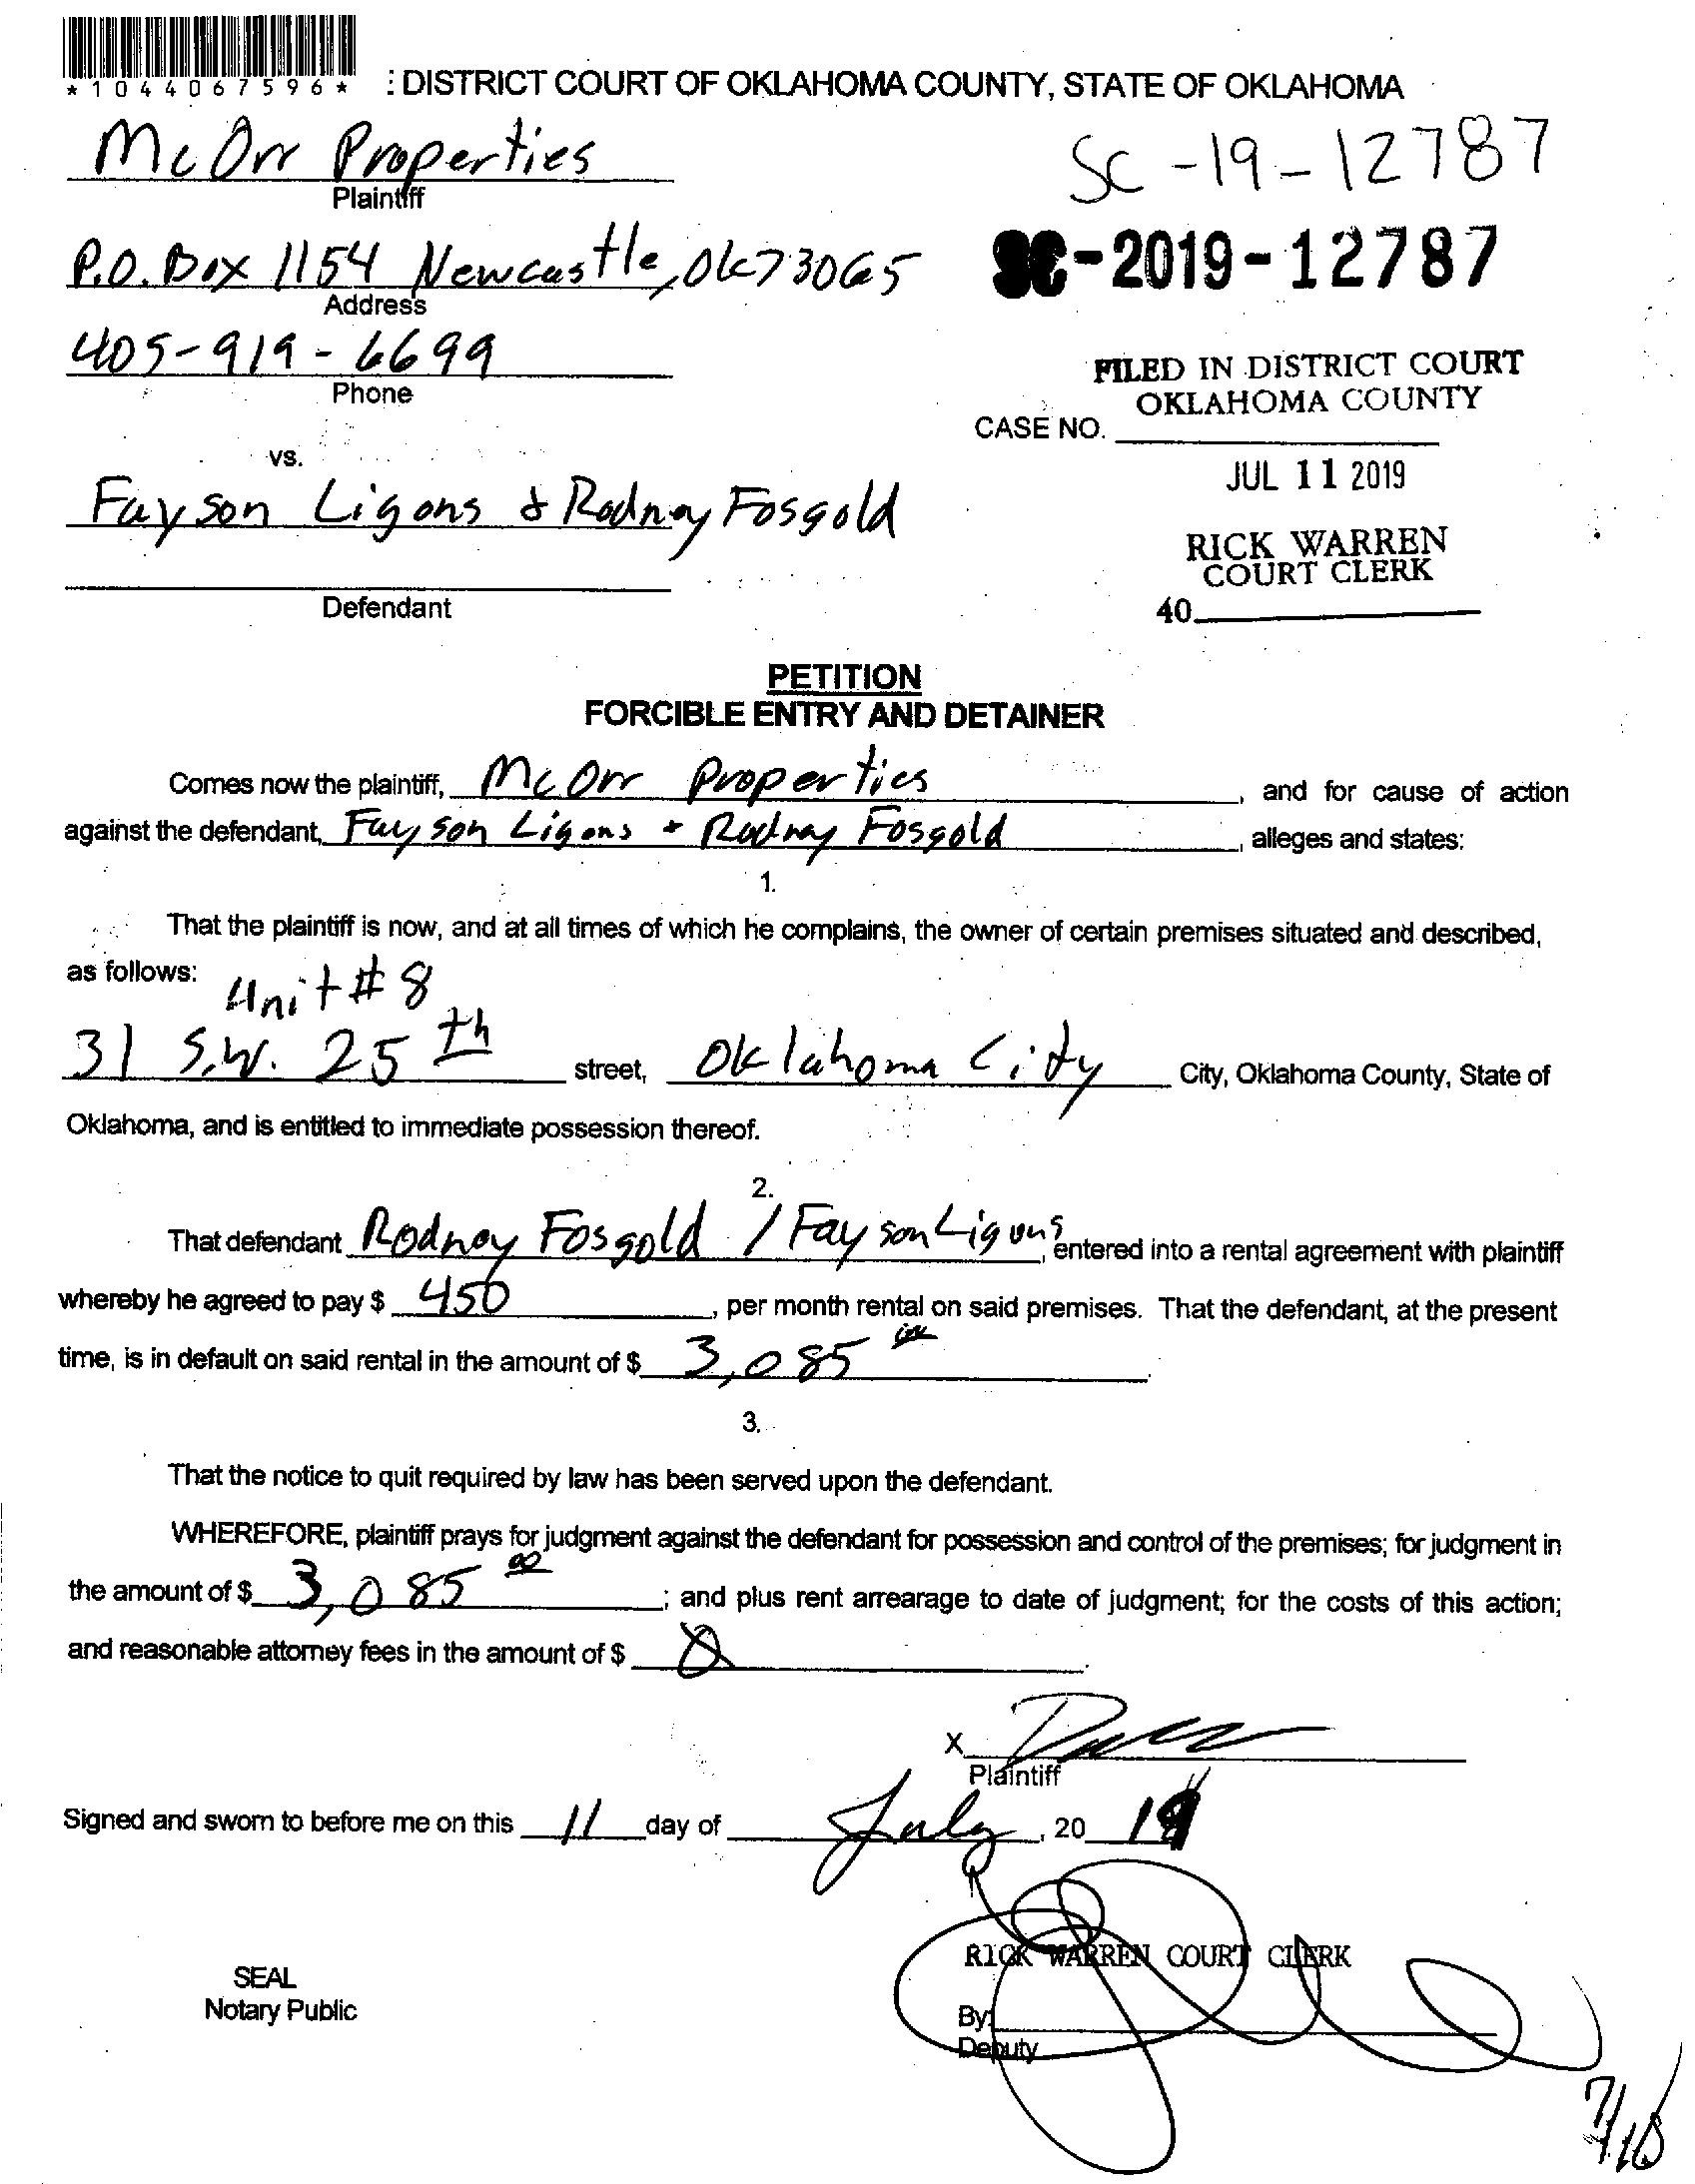 *1044067596*
: DISTRICT COURT OF OKLAHOMA COUNTY, STATE OF OKLAHOMA
McOrr Properties
Plaintiff
SC-19-12787
P.O. Box 1154 Newcastle, Ok 73065
Address
SC-2019-12787
405-919-6699
Phone
FILED IN DISTRICT COURT
OKLAHOMA COUNTY
CASE NO.
vs.
JUL 11 2019
Fayson Ligons & Rodney Fosgold
RICK WARREN
COURT CLERK
Defendant
40
PETITION
FORCIBLE ENTRY AND DETAINER
Comes now the plaintiff, McOrr Properties, and for cause of action
against the defendant, Fayson Ligons + Rodney Fosgold, alleges and states:
1.
That the plaintiff is now, and at all times of which he complains, the owner of certain premises situated and described,
as follows: Unit #8
31 S.W. 25th street, Oklahoma City City, Oklahoma County, State of
Oklahoma, and is entitled to immediate possession thereof.
2.
That defendant Rodney Fosgold / Fayson Ligons, entered into a rental agreement with plaintiff
whereby he agreed to pay $ 450, per month rental on said premises. That the defendant, at the present
time, is in default on said rental in the amount of $ 3,085 00.
3.
That the notice to quit required by law has been served upon the defendant.
WHEREFORE, plaintiff prays for judgment against the defendant for possession and control of the premises; for judgment in
the amount of $ 3,085 00; and plus rent arrearage to date of judgment; for the costs of this action;
and reasonable attorney fees in the amount of $ 0.
X
Plaintiff
Signed and sworn to before me on this 11 day of July, 20 19
RICK WARREN COURT CLERK
SEAL
Notary Public
By:
Deputy
7/18